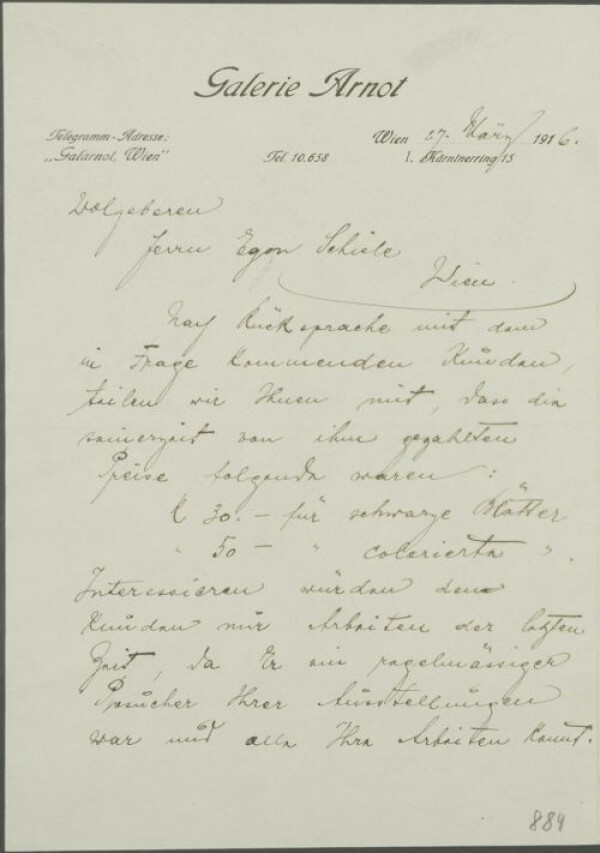 Galerie Arnot
Telegramm-Adresse:
„Galarnot, Wien"
Tel. 10.658
Wien 27. März 1916.
I. Kärntnerring 15
Wolgeboren
Herrn Egon Schiele
Wien
Nach Rücksprache mit dem
in Frage kommenden Kunden,
teilen wir Ihnen mit, dass die
seinerzeit von ihm gezahlten
Preise folgende waren:
K 30.– für schwarze Blätter
" 50 – " colorierte ".
Interessieren würden den
Kunden nur Arbeiten der letzten
Zeit, da Er ein regelmässiger
Besucher Ihrer Ausstellungen
war und alle Ihre Arbeiten kennt.
884